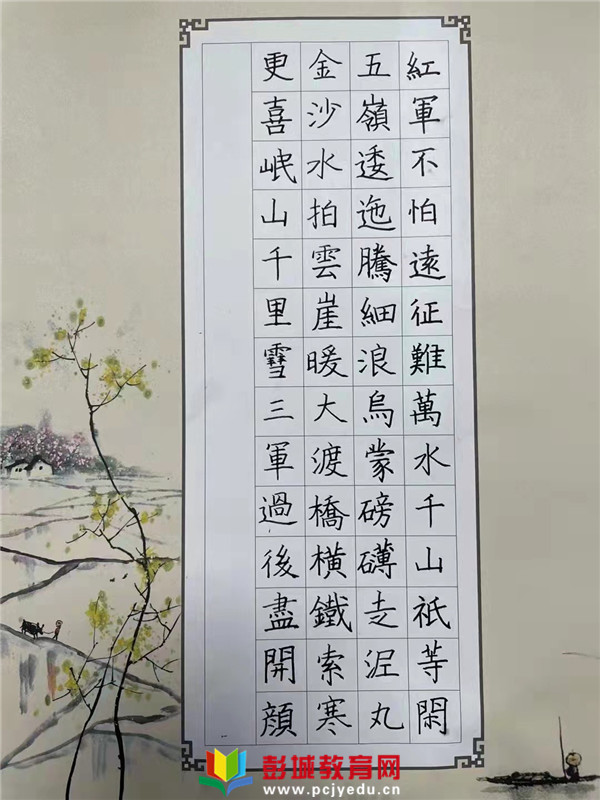 紅軍不怕遠征難萬水千山祇等閑
五嶺逶迤騰細浪烏蒙磅礴走泥丸
金沙水拍雲崖暖大渡橋橫鐵索寒
更喜岷山千里雪三軍過後盡開顔
彭城教育网
www.pcjyedu.cn